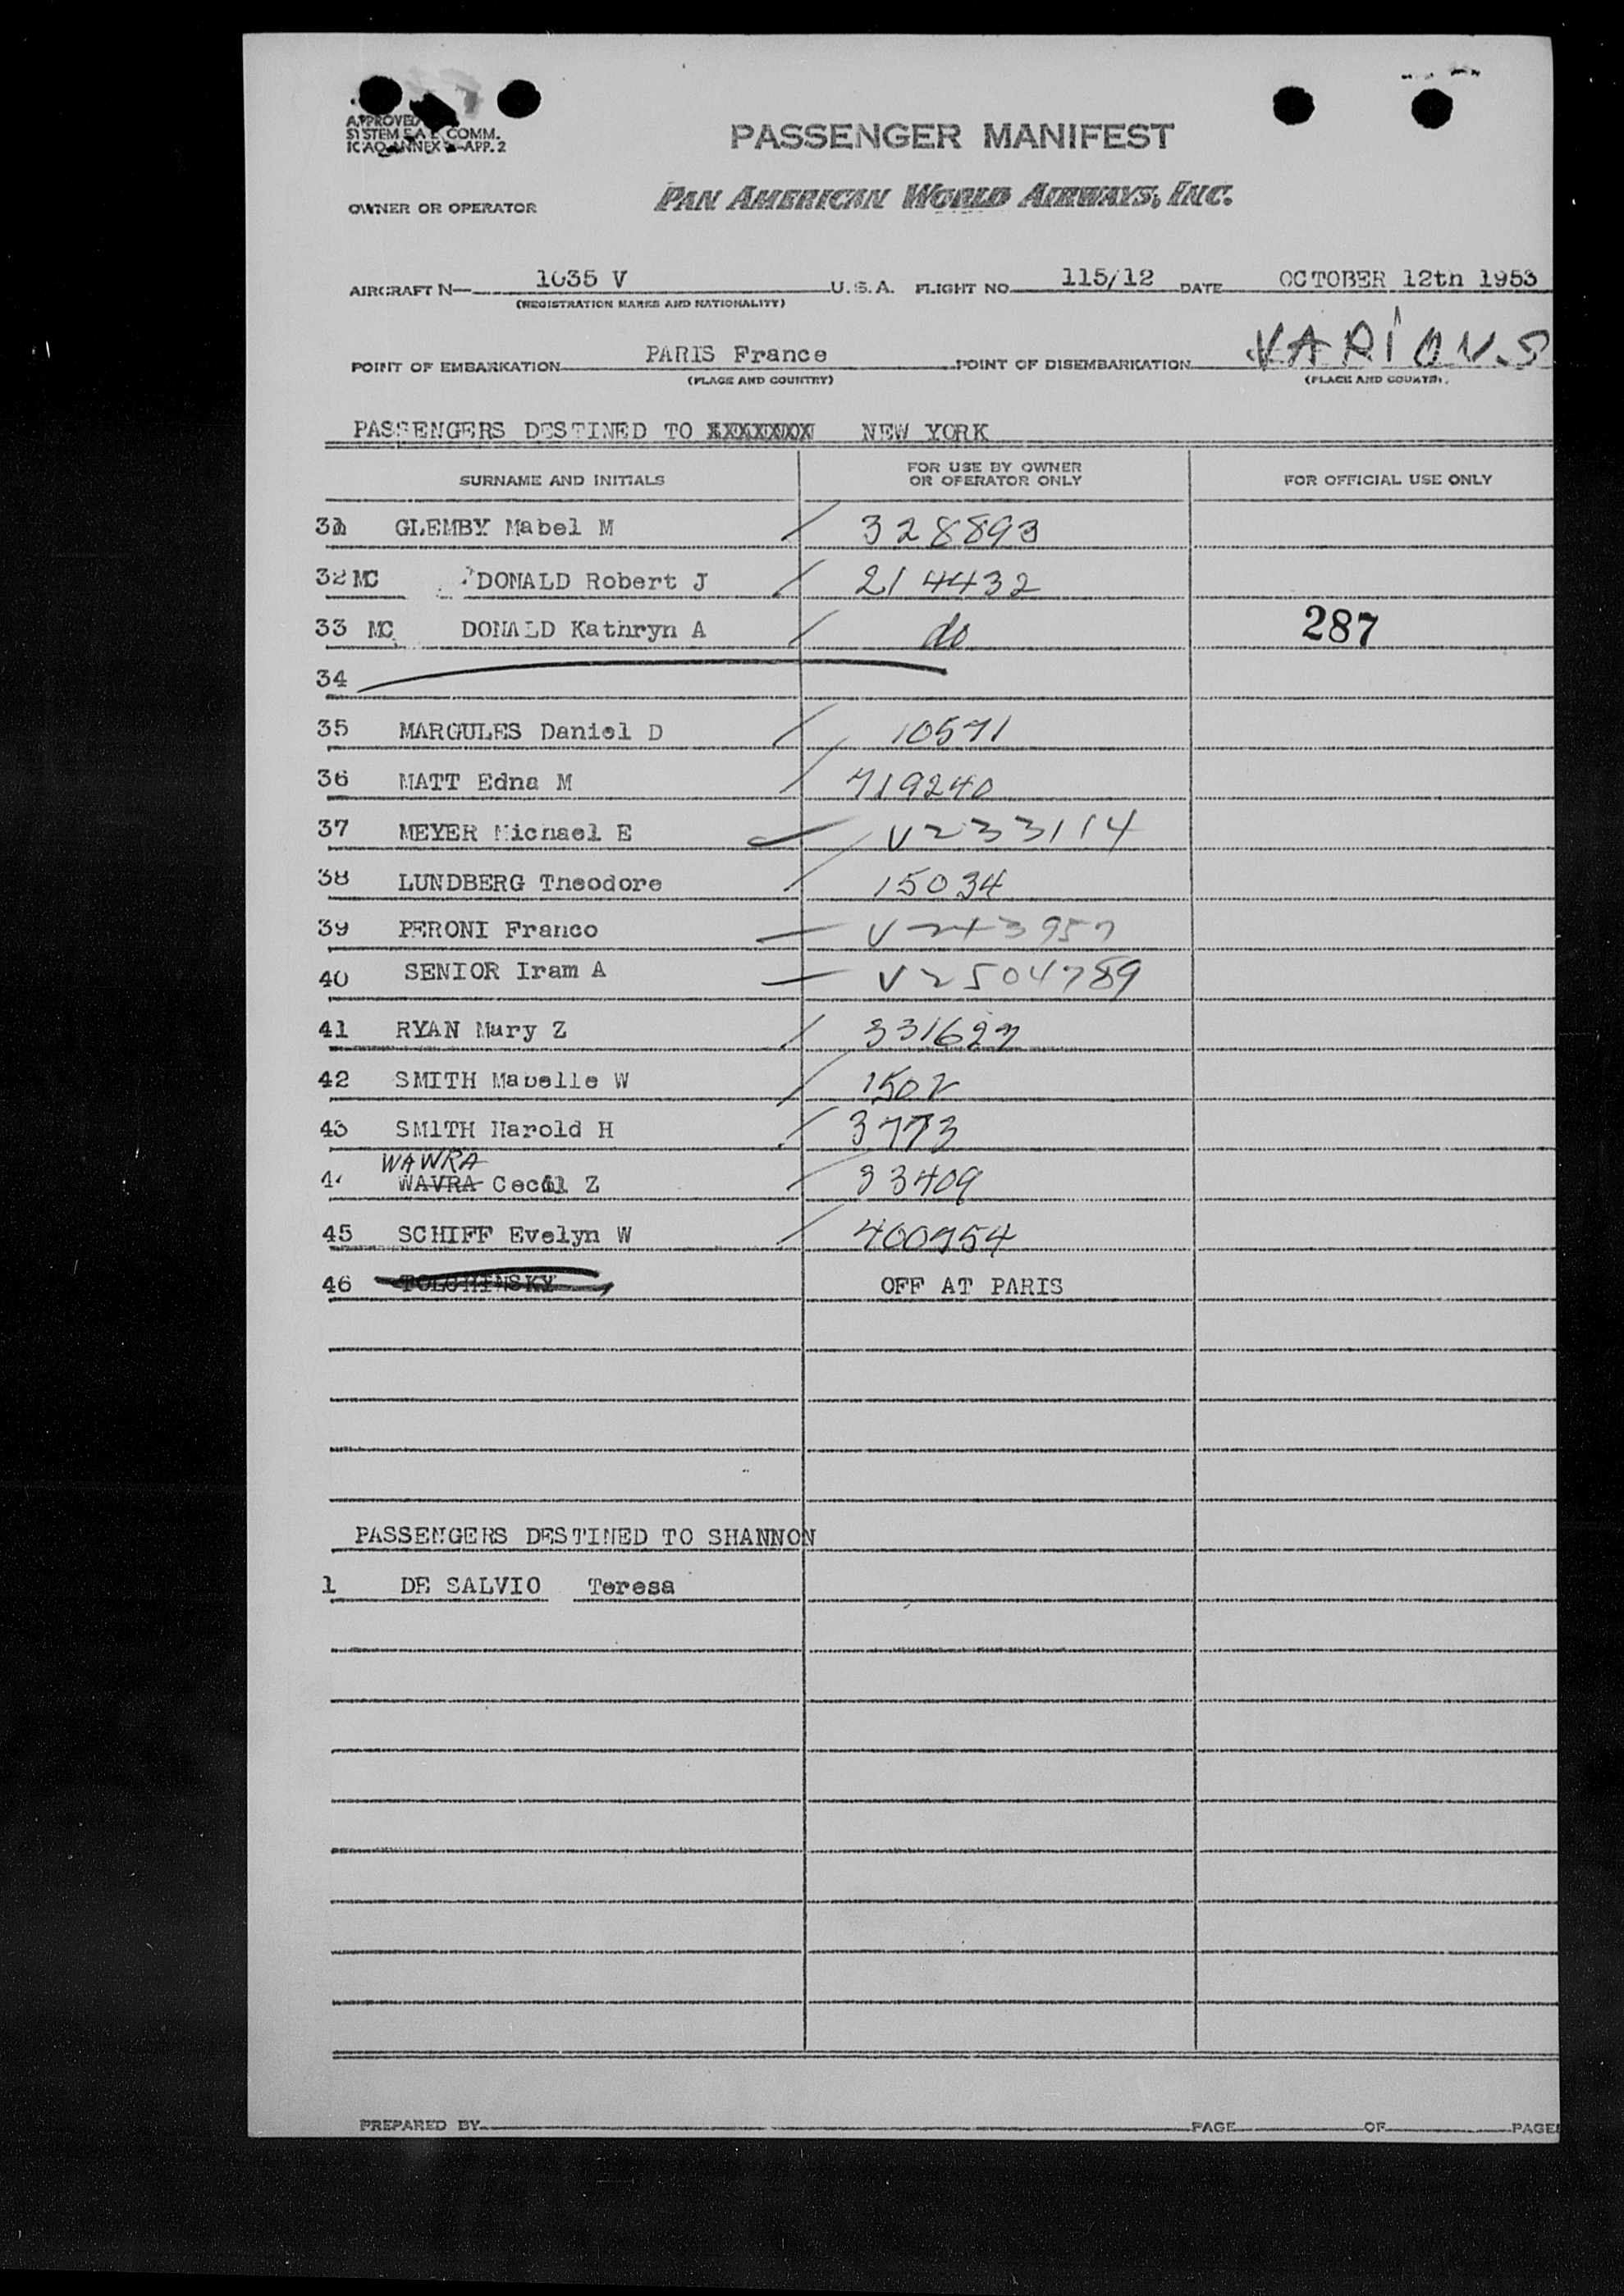 APPROVED
SYSTEM F.A.L. COMM.
ICAO ANNEX 9-APP. 2
PASSENGER MANIFEST
OWNER OR OPERATOR PAN AMERICAN WORLD AIRWAYS, INC.
AIRCRAFT N— 1035 V U.S.A. FLIGHT NO. 115/12 DATE OCTOBER 12th 1953
(REGISTRATION MARKS AND NATIONALITY)
POINT OF EMBARKATION PARIS France POINT OF DISEMBARKATION VARIOUS
(PLACE AND COUNTRY) (PLACE AND COUNTRY)
PASSENGERS DESTINED TO XXXXXXX NEW YORK
SURNAME AND INITIALS FOR USE BY OWNER OR OPERATOR ONLY FOR OFFICIAL USE ONLY
31 GLEMBY Mabel M 328893
32 MC DONALD Robert J 214432
33 MC DONALD Kathryn A do 287
34
35 MARGULES Daniel D 10571
36 MATT Edna M 719240
37 MEYER Michael E V233114
38 LUNDBERG Theodore 15034
39 PERONI Franco V243957
40 SENIOR Iram A V2504789
41 RYAN Mary Z 331627
42 SMITH Mabelle W 1502
43 SMITH Harold H 3773
WAWRA
44 WAVRA Cecil Z 33409
45 SCHIFF Evelyn W 400754
46 TOLCHINSKY OFF AT PARIS
PASSENGERS DESTINED TO SHANNON
1 DE SALVIO Teresa
PREPARED BY PAGE OF PAGE